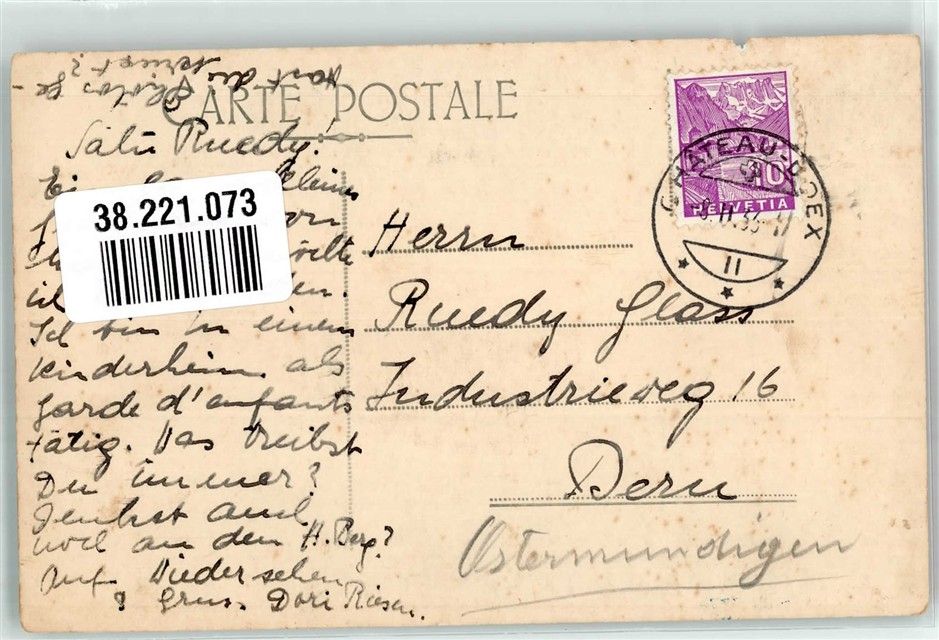 Hast du
Photos ge-
CARTE POSTALE
Salü Ruedy!
kleiner
38.221.073
Ich bin in einem
Kinderheim als
garde d'enfants
tätig. Was treibst
Du immer?
Denkst auch
noch an den H. Berg?
Auf Wiedersehen
Gruss. Dori Riesen.
Herrn
Ruedy Glass
Industrieweg 16
Bern
Ostermundigen
HELVETIA
CHÂTEAU-D'OEX
II